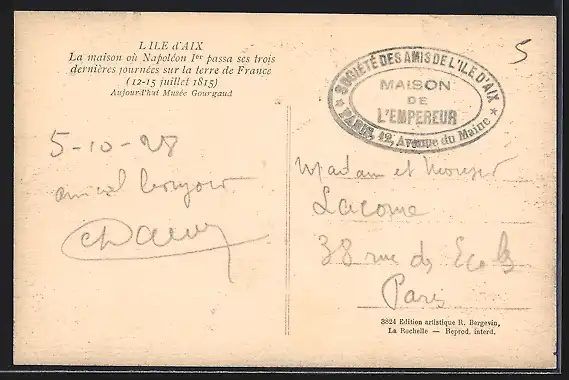 L'ILE d'AIX
La maison où Napoléon Ier passa ses trois
dernières journées sur la terre de France
(12-15 juillet 1815)
Aujourd'hui Musée Gourgaud
5-10-28
amical bonjour
SOCIÉTÉ DES AMIS DE L'ILE D'AIX
MAISON
DE
L'EMPEREUR
PARIS, 42, Avenue du Maine
5
Madam et
Lacome
38 rue des Ecols
Paris
3824 Edition artistique R. Bergevin,
La Rochelle — Reprod. interd.